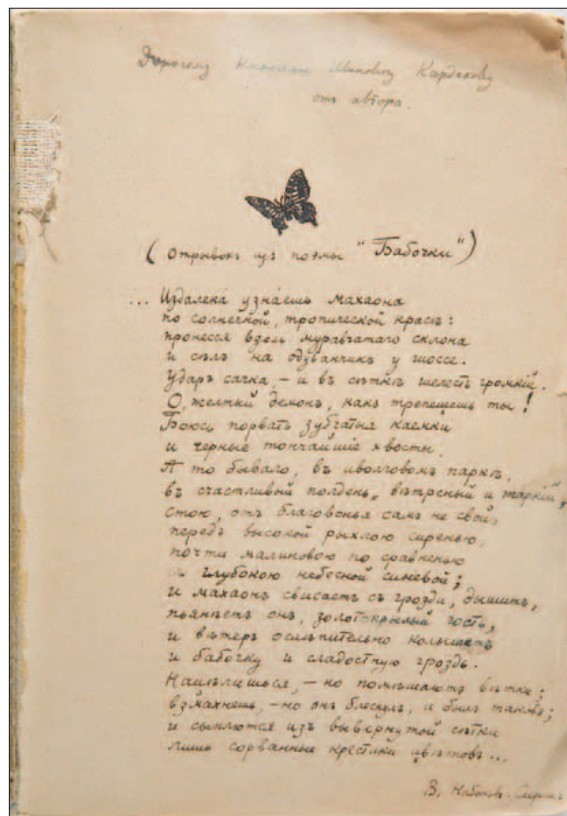 Дорогому Николаю Ивановичу Кардакову
отъ автора.
(Отрывокъ изъ поэмы "Бабочки")
... Издалека узнаёшь махаона
по солнечной, тропической красѣ:
пронесся вдоль муравчатаго склона
и сѣлъ на одуванчикъ у шоссе.
Ударъ сачка, – и въ сѣткѣ шелестъ громкій.
О, желтый демонъ, какъ трепещешь ты!
Боюсь порвать зубчатыя каемки
и черные тончайшіе хвосты.
А то бывало, въ иволговомъ паркѣ,
въ счастливый полдень, вѣтреный и жаркій,
стою, отъ благовонья самъ не свой,
передъ высокой рыхлою сиренью,
почти малиновою по сравненью
съ глубокою небесной синевой;
и махаонъ свисаетъ съ грозди, дышитъ,
пьянѣетъ онъ, золотокрылый гость,
и вѣтеръ ослѣпительно колышетъ
и бабочку и сладостную гроздь.
Нацѣлишься, – но помѣшаютъ вѣтки;
взмахнешь, – но онъ блеснулъ, и былъ таковъ;
и сыплются изъ вывернутой сѣтки
лишь сорванные крестики цвѣтовъ...
В. Набоковъ-Сиринъ